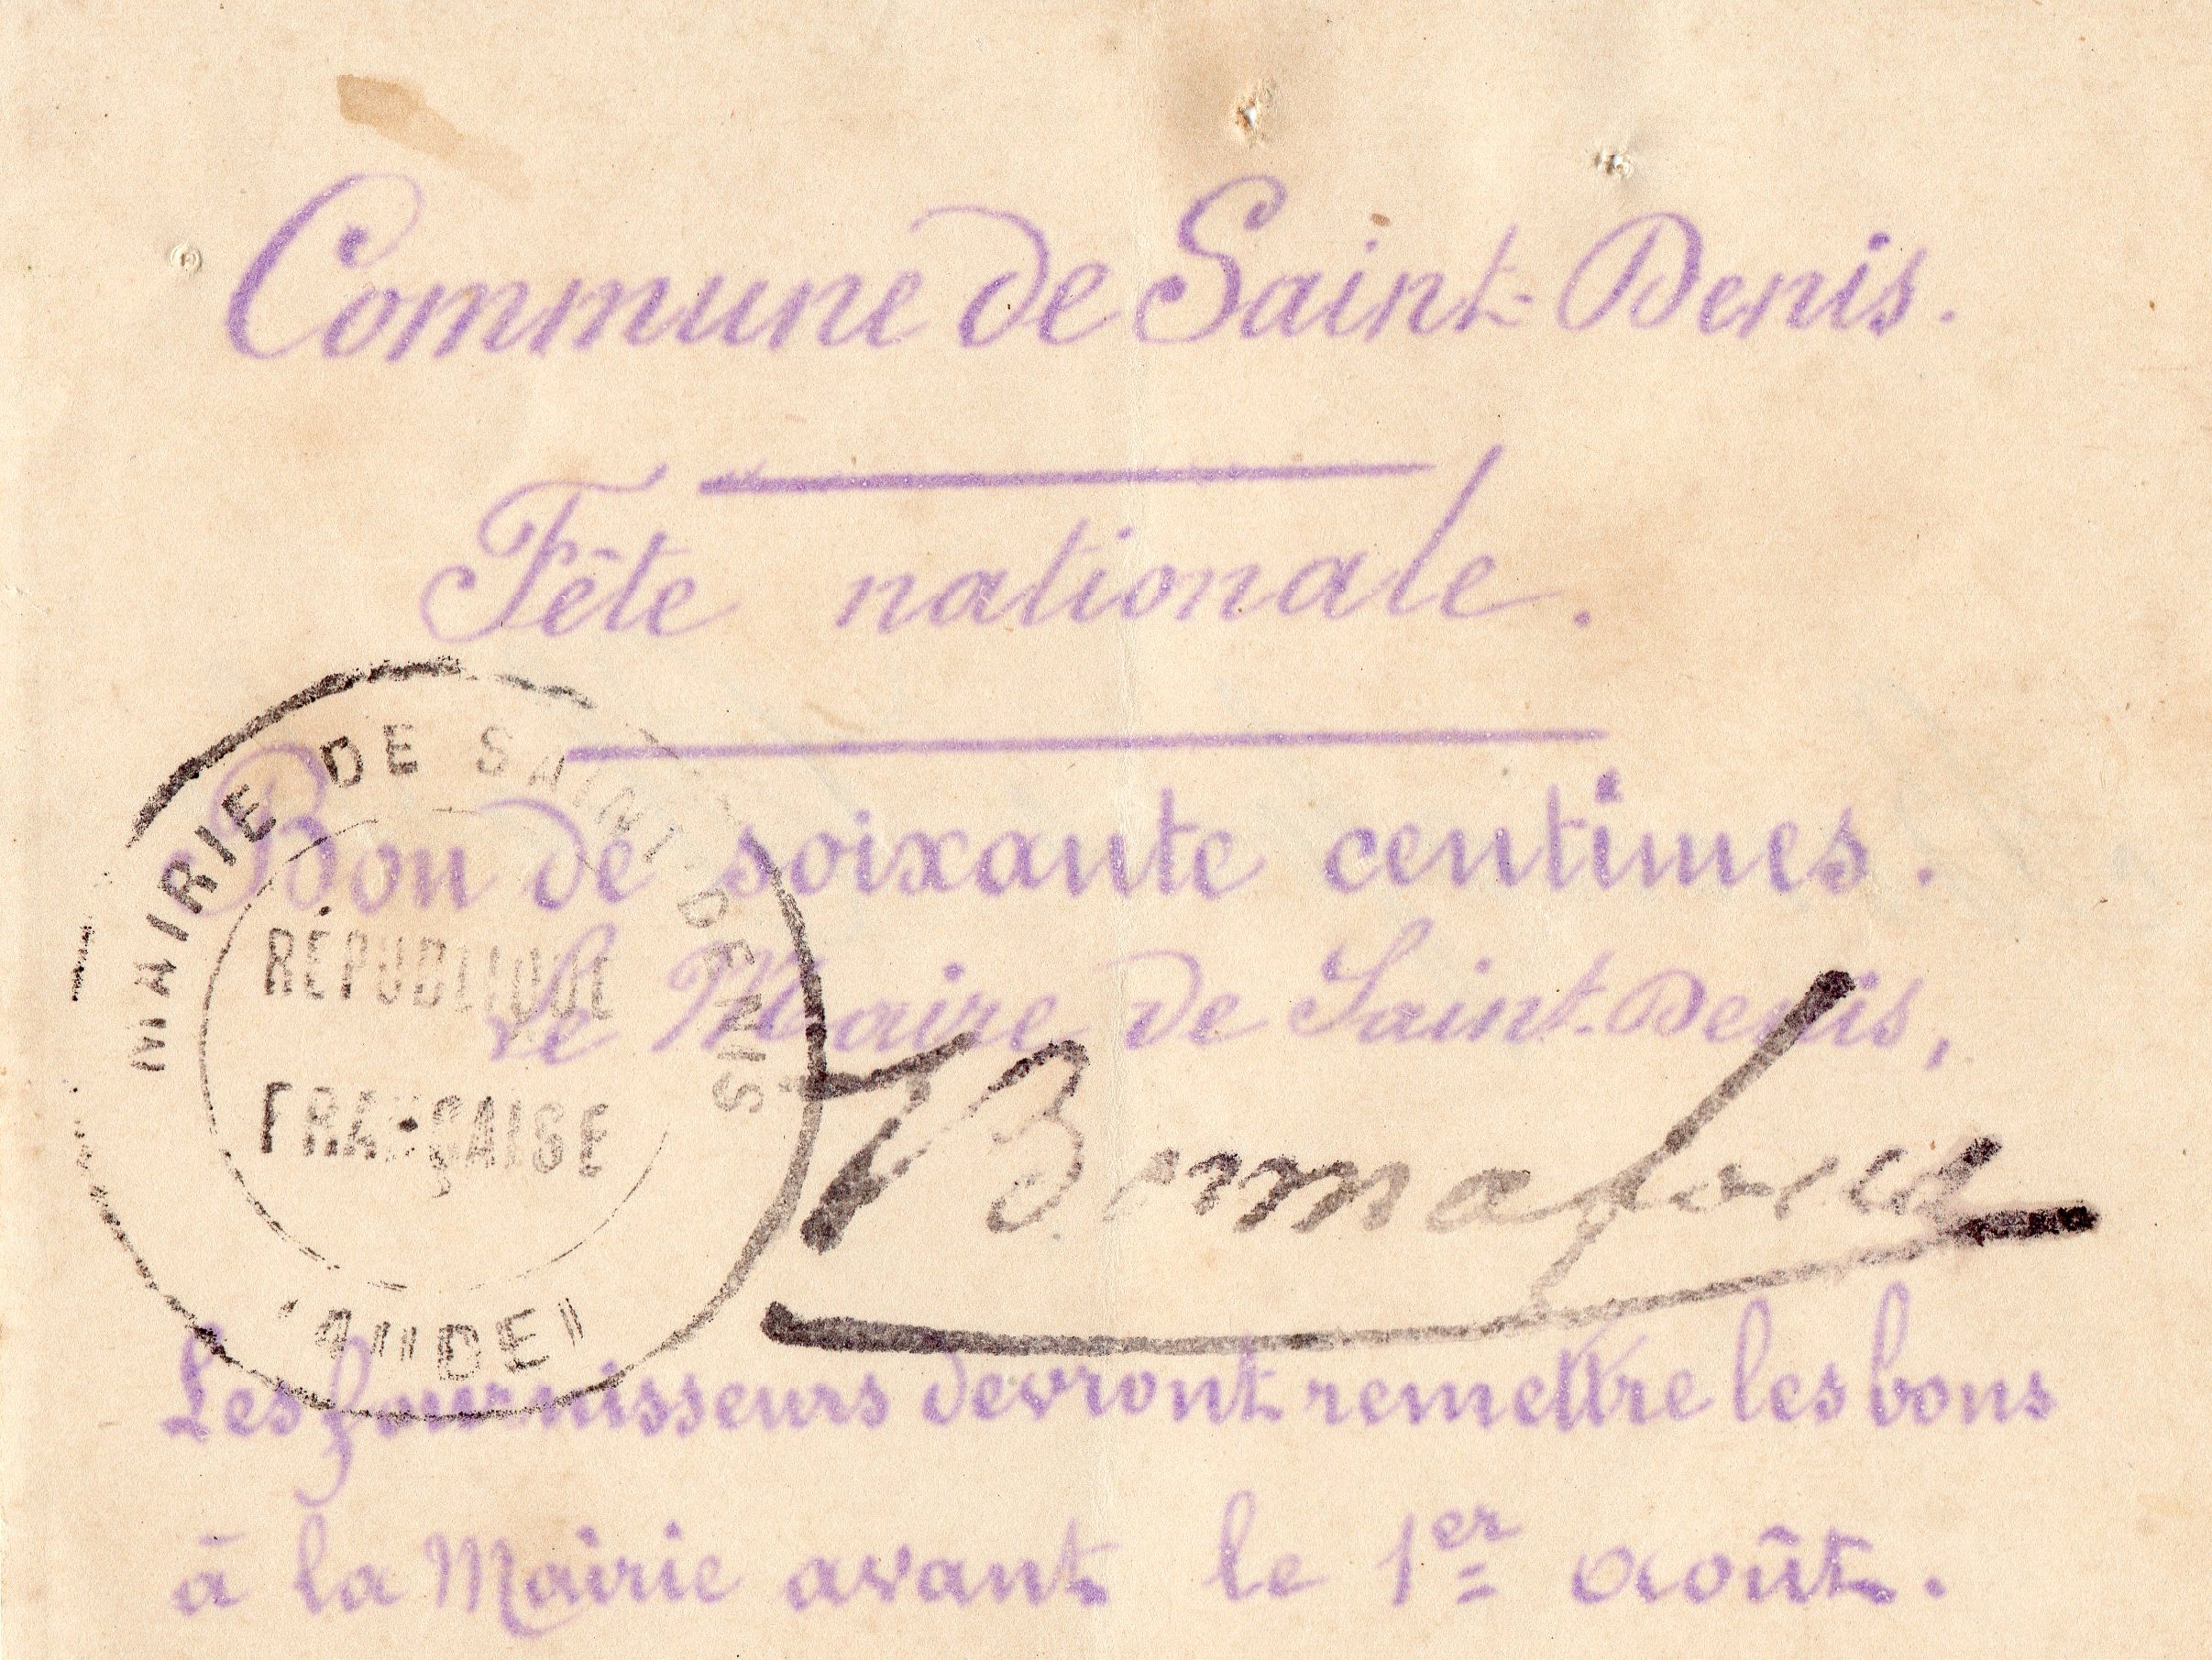 Commune de Saint-Denis.
Fête nationale.
Bon de soixante centimes.
Le Maire de Saint-Denis,
MAIRIE DE SAINT-DENIS
RÉPUBLIQUE
FRANÇAISE
Les fournisseurs devront remettre les bons
à la Mairie avant le 1er août.